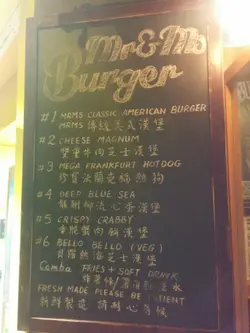 Mr & Ms
Burger
#1 MRMS CLASSIC AMERICAN BURGER
MRMS 傳統美式漢堡
#2 CHEESE MAGNUM
雙重牛肉芝士漢堡
#3 MEGA FRANKFURT HOTDOG
珍寶法蘭克福熱狗
#4 DEEP BLUE SEA
龍脷柳流心蛋漢堡
#5 CRISPY CRABBY
香脆蟹肉餅漢堡
#6 BELLO BELLO (VEG)
芝士漢堡
Combo FRIES + SOFT DRINK
炸薯條 / 汽水
FRESH MADE PLEASE BE PATIENT
新鮮製造 請耐心等候